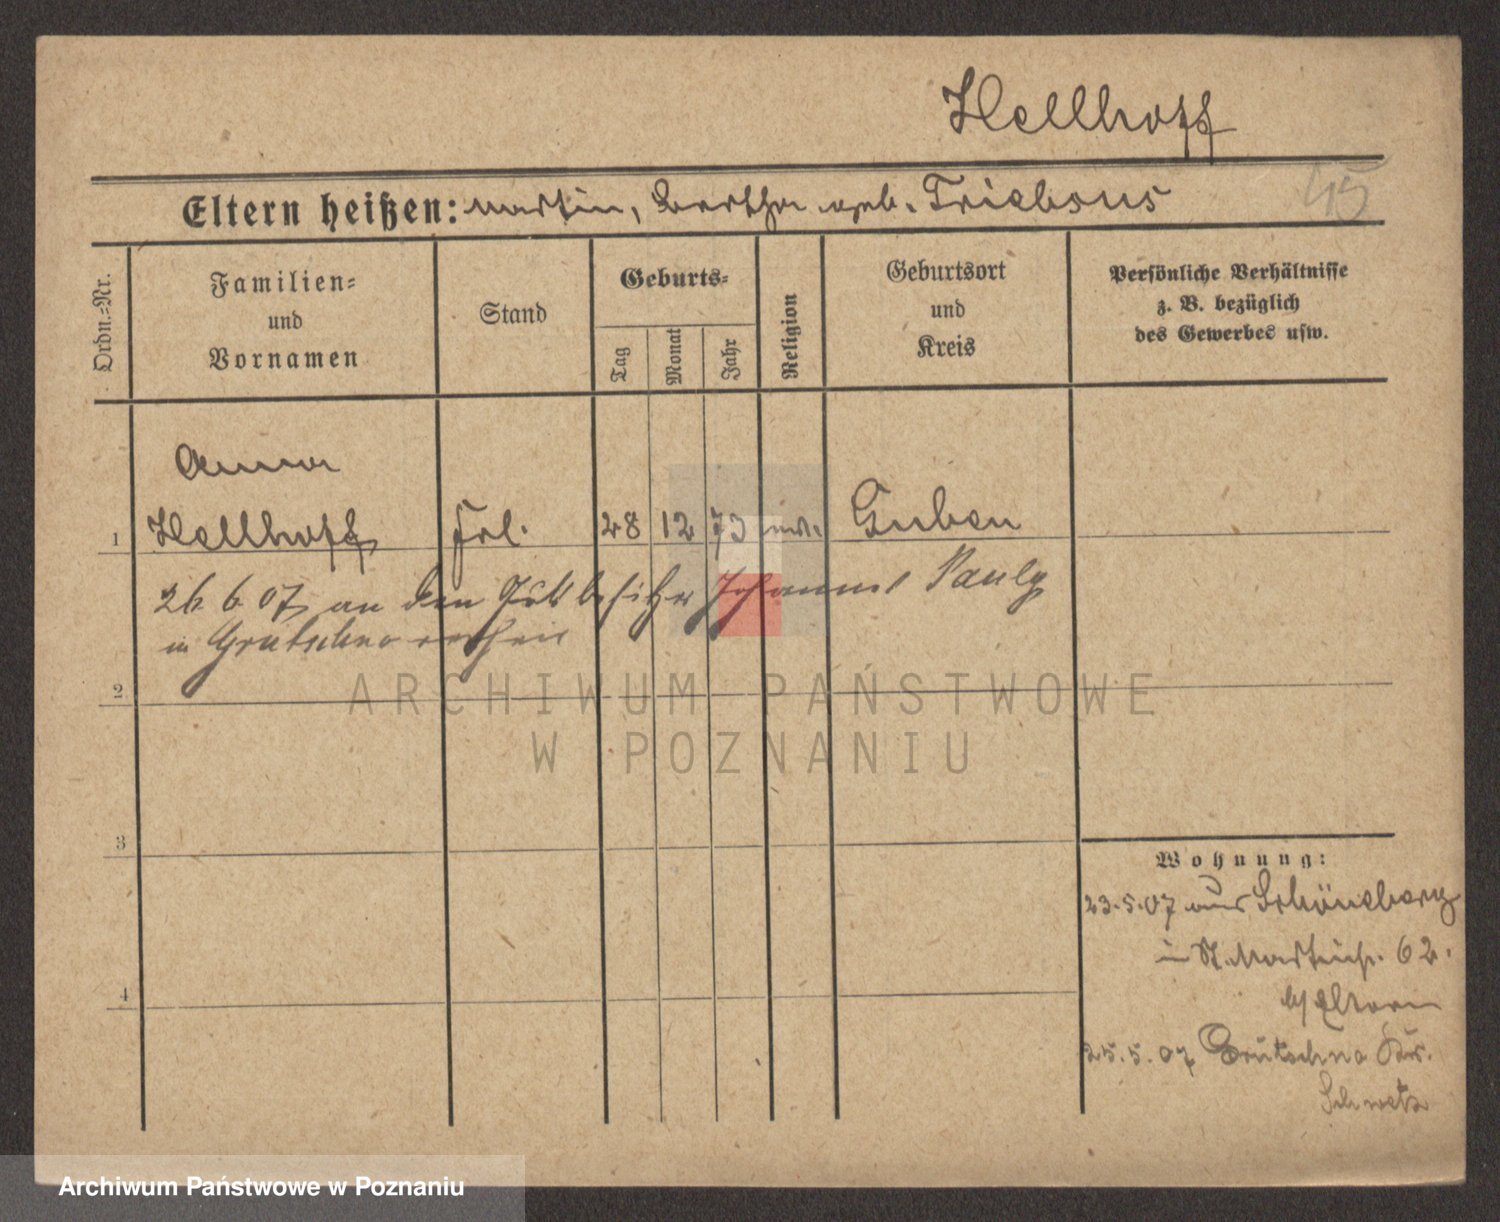 Hellhoff
45
Eltern heißen: Martin, Bertha geb. Triebsus
Ordn.=Nr.
Familien=
und
Vornamen
Stand
Geburts=
Tag
Monat
Jahr
Religion
Geburtsort
und
Kreis
Persönliche Verhältnisse
z. B. bezüglich
des Gewerbes usw.
Anna
1 Hellhoff Frl. 28 12 73 Guben
26 6 07 an den Gutsbesitzer Johannes Pauly
in Grutschno verheir
2
ARCHIWUM PAŃSTWOWE
W POZNANIU
3
4
Wohnung:
23.5.07 aus Schöneberg
in St. Martinstr. 62.
b/ Eltern
25.5.07 Grutschno Kr.
Schwetz
Archiwum Państwowe w Poznaniu